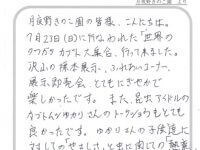 月夜野きのこ園 より
月夜野きのこ園の皆様、こんにちは。
7月23日(日)に行なわれた「世界の
クワガタ カブトムシ大集合」行って来ました。
沢山の標本展示、ふれあいコーナー、
展示即売会、とてもにぎやかで
楽しかったです。また、昆虫アイドルの
カブトムシゆかりさんのトークショウもとても
良かったです。ゆかりさんの子供達に
対しての「やさしさ」と虫に関しての「熱意